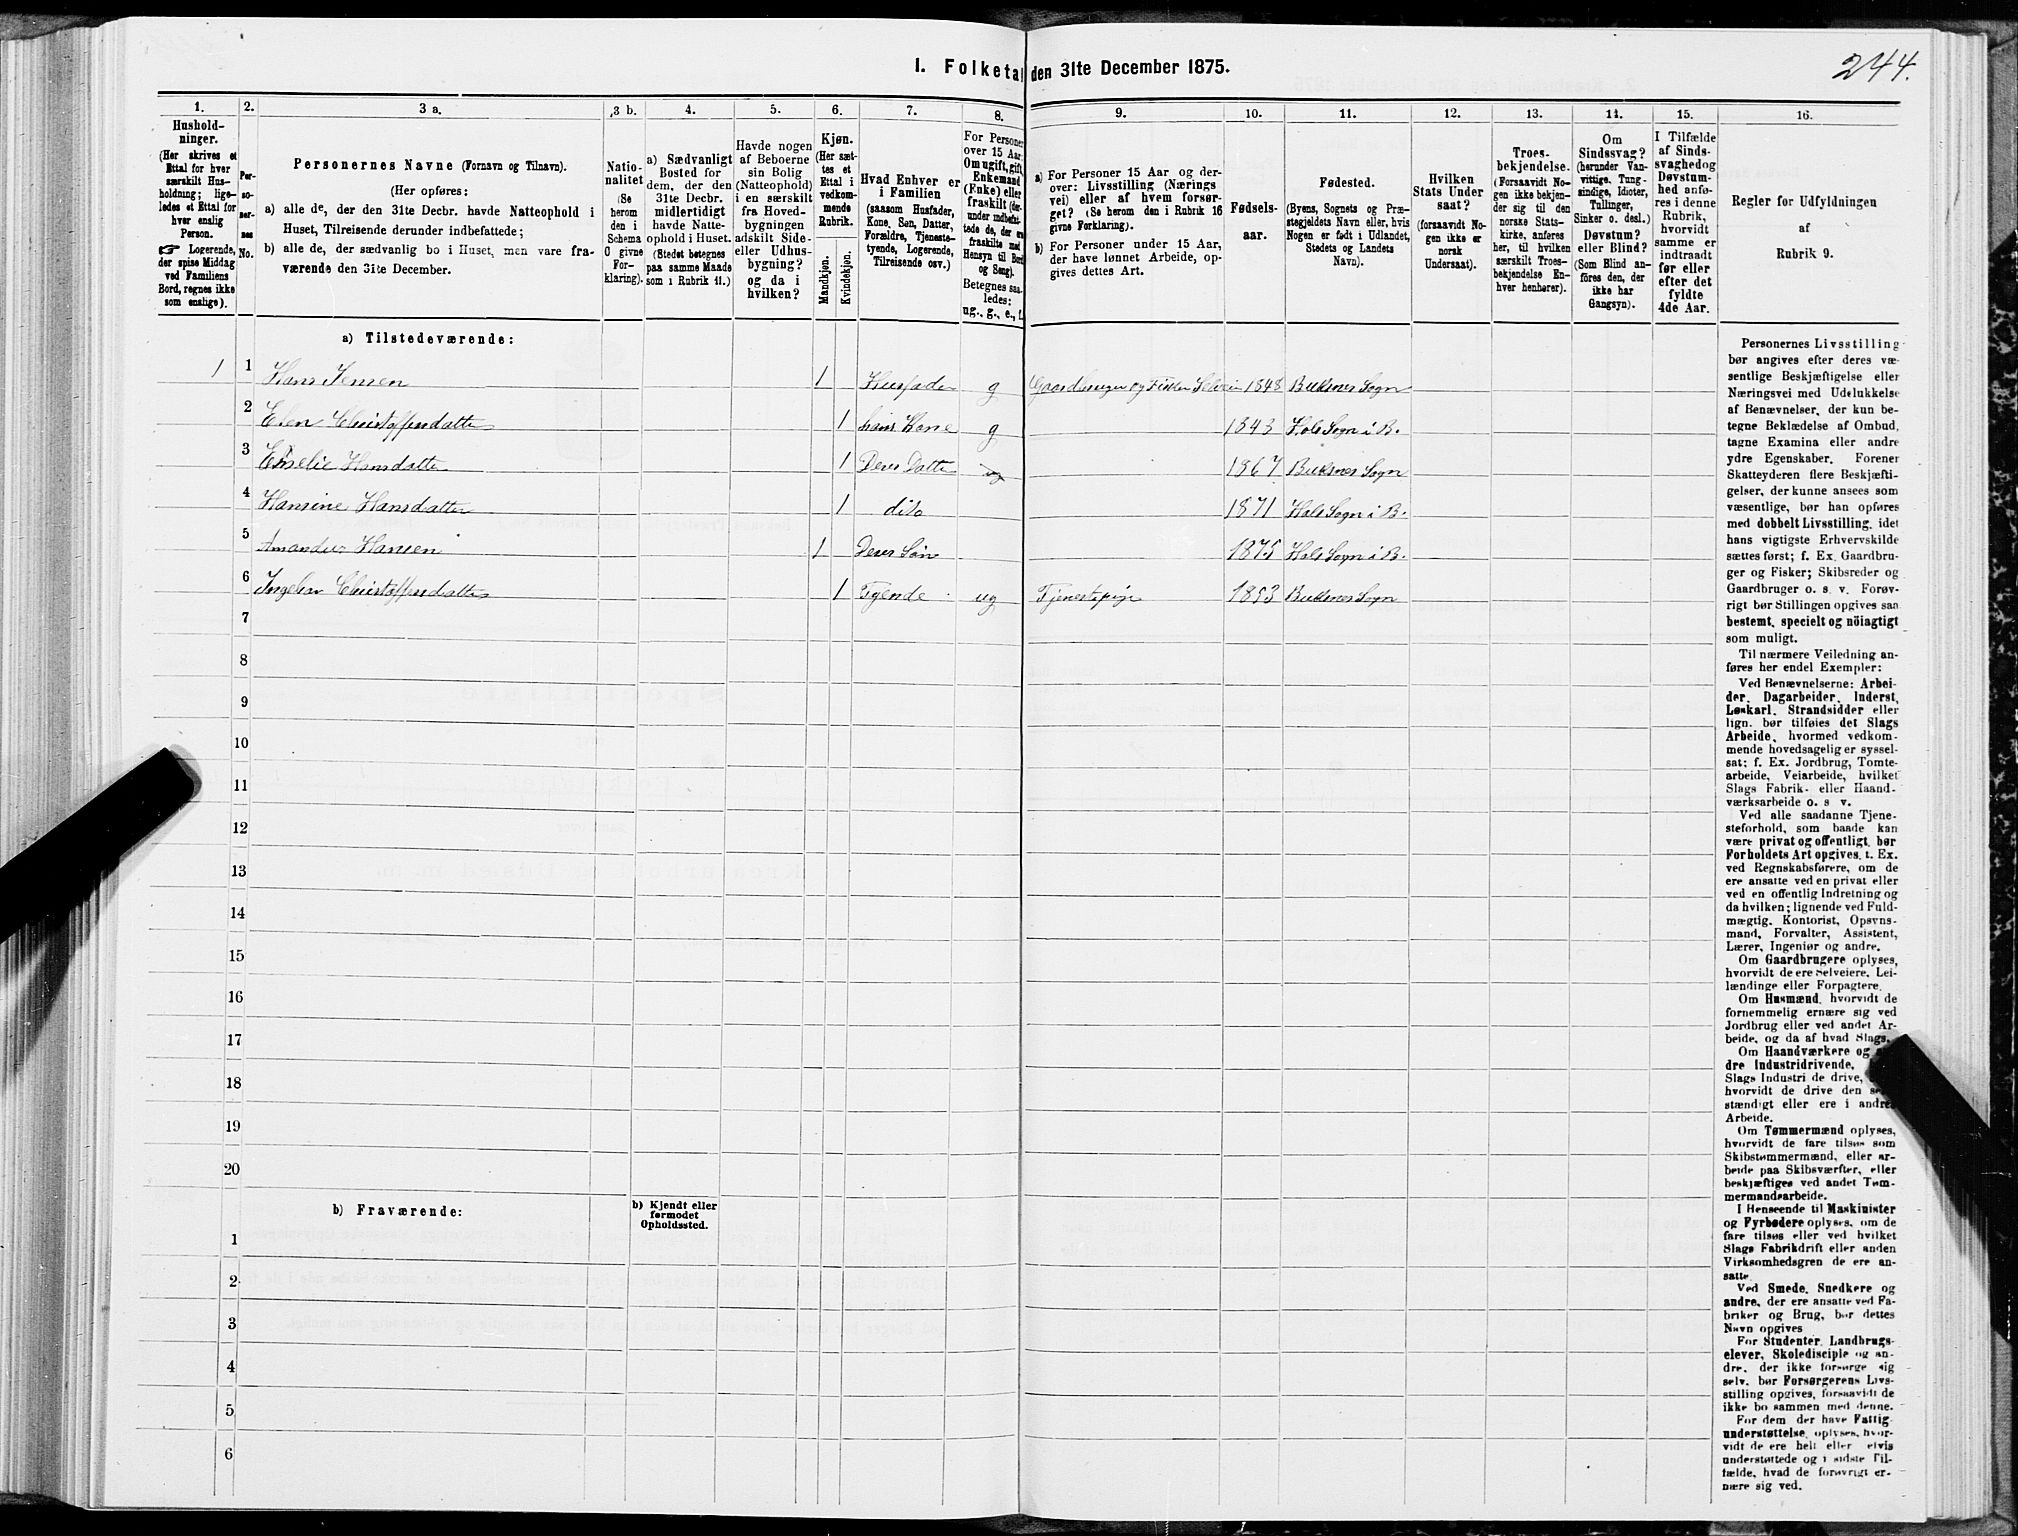 244.
I. Folketal den 31te December 1875.
1.
Hushold-
ninger.
(Her skrives et
Ettal for hver
særskilt Hus-
holdning; lige-
ledes et Ettal for
hver enslig
Person.
☞ Logerende,
der spise Middag
ved Familiens
Bord, regnes ikke
som enslige).
2.
Per-
so-
ner-
nes
No.
3 a.
Personernes Navne (Fornavn og Tilnavn).
(Her opføres:
a) alle de, der den 31te Decbr. havde Natteophold i
Huset, Tilreisende derunder indbefattede;
b) alle de, der sædvanlig bo i Huset, men vare fra-
værende den 31te December.
3 b.
Natio-
nalitet
(Se
herom
den i
Schema
O givne
For-
klaring).
4.
a) Sædvanligt
Bosted for
dem, der den
31te Decbr.
midlertidigt
havde Natte-
ophold i Huset.
(Stedet betegnes
paa samme Maade
som i Rubrik 11.)
5.
Havde nogen
af Beboerne
sin Bolig
(Natteophold)
i en særskilt
fra Hoved-
bygningen
adskilt Side-
eller Udhus-
bygning?
og da i
hvilken?
6.
Kjøn.
(Her sæt-
tes et
Ettal i
vedkom-
mende
Rubrik.
Mandkjøn.
Kvindekjøn.
7.
Hvad Enhver er
i Familien
(saasom Husfader,
Kone, Søn, Datter,
Forældre, Tjeneste-
tyende, Logerende,
Tilreisende osv.)
8.
For Personer
over 15 Aar:
Om ugift, gift,
Enkemand
(Enke) eller
fraskilt (der-
under indbefat-
tede de, der ere
fraskilte med
Hensyn til Bord
og Seng).
Betegnes saa-
ledes:
ug., g., e., f.
9.
a) For Personer 15 Aar og der-
over: Livsstilling (Nærings
vei) eller af hvem forsør-
get? (Se herom den i Rubrik 16
givne Forklaring).
b) For Personer under 15 Aar,
der have lønnet Arbeide, op-
gives dettes Art.
10.
Fødsels-
aar.
11.
Fødested.
(Byens, Sognets og Præ-
stegjeldets Navn eller, hvis
Nogen er født i Udlandet,
Stedets og Landets
Navn).
12.
Hvilken
Stats Under
saat?
(forsaavidt No-
gen ikke er
norsk
Undersaat).
13.
Troes-
bekjendelse.
(Forsaavidt No-
gen ikke bekjen-
der sig til den
norske Stats-
kirke, anføres
her, til hvilken
særskilt Troes-
bekjendelse En-
hver henhører).
14.
Om
Sindssvag?
(herunder Van-
vittige, Tung-
sindige, Idioter,
Tullinger,
Sinker o. desl.)
Døvstum?
eller Blind?
(Som Blind an-
føres den, der
ikke har
Gangsyn).
15.
I Tilfælde
af Sinds-
svaghed og
Døvstum-
hed anfø-
res i denne
Rubrik,
hvorvidt
samme er
indtraadt
før eller
efter det
fyldte
4de Aar.
16.
Regler for Udfyldningen
af
Rubrik 9.
a) Tilstedeværende:
1 1 Hans Jensen 1 Husfader g Gaardbruger og Fisker Selveier 1848 Buksnes Sogn
2 Elen Christoffersdatter 1 hans Kone g 1843 Hols Sogn i B.
3 Emelie Hansdatter 1 Deres Datter ug 1867 Buksnes Sogn
4 Hansine Hansdatter 1 dito 1871 Hols Sogn i B.
5 Amandus Hansen 1 Deres Søn 1875 Hols Sogn i B.
6 Ingebor Christoffersdatter 1 Tyende ug Tjenestepige 1853 Buksnes Sogn
7
8
9
10
11
12
13
14
15
16
17
18
19
20
b) Fraværende:
b) Kjendt eller
formodet
Opholdssted.
1
2
3
4
5
6
Personernes Livsstilling
bør angives efter deres væ-
sentlige Beskjæftigelse eller
Næringsvei med Udelukkelse
af Benævnelser, der kun be-
tegne Beklædelse af Ombud,
tagne Examina eller andre
ydre Egenskaber. Forener
Skatteyderen flere Beskjæfti-
gelser, der kunne ansees som
væsentlige, bør han opføres
med dobbelt Livsstilling, idet
hans vigtigste Erhvervskilde
sættes først; f. Ex. Gaardbru-
ger og Fisker; Skibsreder og
Gaardbruger o. s. v. Forøv-
rigt bør Stillingen opgives saa
bestemt, specielt og nöiagtigt
som muligt.
Til nærmere Veiledning an-
føres her endel Exempler:
Ved Benævnelserne: Arbei-
der, Dagarbeider, Inderst,
Løskarl, Strandsidder eller
lign. bør tilføies det Slags
Arbeide, hvormed vedkom-
mende hovedsagelig er syssel-
sat; f. Ex. Jordbrug, Tomte-
arbeide, Veiarbeide, hvilket
Slags Fabrik- eller Haand-
værksarbeide o. s. v.
Ved alle saadanne Tjene-
steforhold, som baade kan
være privat og offentligt, bør
Forholdets Art opgives, t. Ex.
ved Regnskabsførere, om de
ere ansatte ved en privat eller
ved en offentlig Indretning og
da hvilken; lignende ved Fuld-
mægtig, Kontorist, Opsyns-
mand, Forvalter, Assistent,
Lærer, Ingeniør og andre.
Om Gaardbrugere oplyses,
hvorvidt de ere Selveiere, Lei-
lændinge eller Forpagtere.
Om Husmænd, hvorvidt de
fornemmelig ernære sig ved
Jordbrug eller ved andet Ar-
beide, og da af hvad Slags.
Om Haandværkere og
dre Industridrivende,
Slags Industri de drive,
hvorvidt de drive den
stændigt eller ere i andres
Arbeide.
Om Tømmermænd oplyses,
hvorvidt de fare tilsøs som
Skibstømmermænd, eller ar-
beide paa Skibsværfter, eller
beskjæftiges ved andet Tøm-
mermandsarbeide.
I Henseende til Maskinister
og Fyrbødere oplyses, om de
fare tilsøs eller ved hvilket
Slags Fabrikdrift eller anden
Virksomhedsgren de ere an-
satte.
Ved Smede, Snedkere og
andre, der ere ansatte ved Fa-
briker og Brug, bør dettes
Navn opgives
For Studenter, Landbrugs-
elever, Skoledisciple og an-
dre, der ikke forsørge sig
selv, bør Forsørgerens Livs-
stilling opgives, forsaavidt de
ikke bo sammen med denne.
For dem, der have Fattig-
understøttelse, oplyses, hvor-
vidt de ere helt eller elvis
understøttede og i sidste Til-
fælde, hvad de forøvrigt er-
nære sig ved.